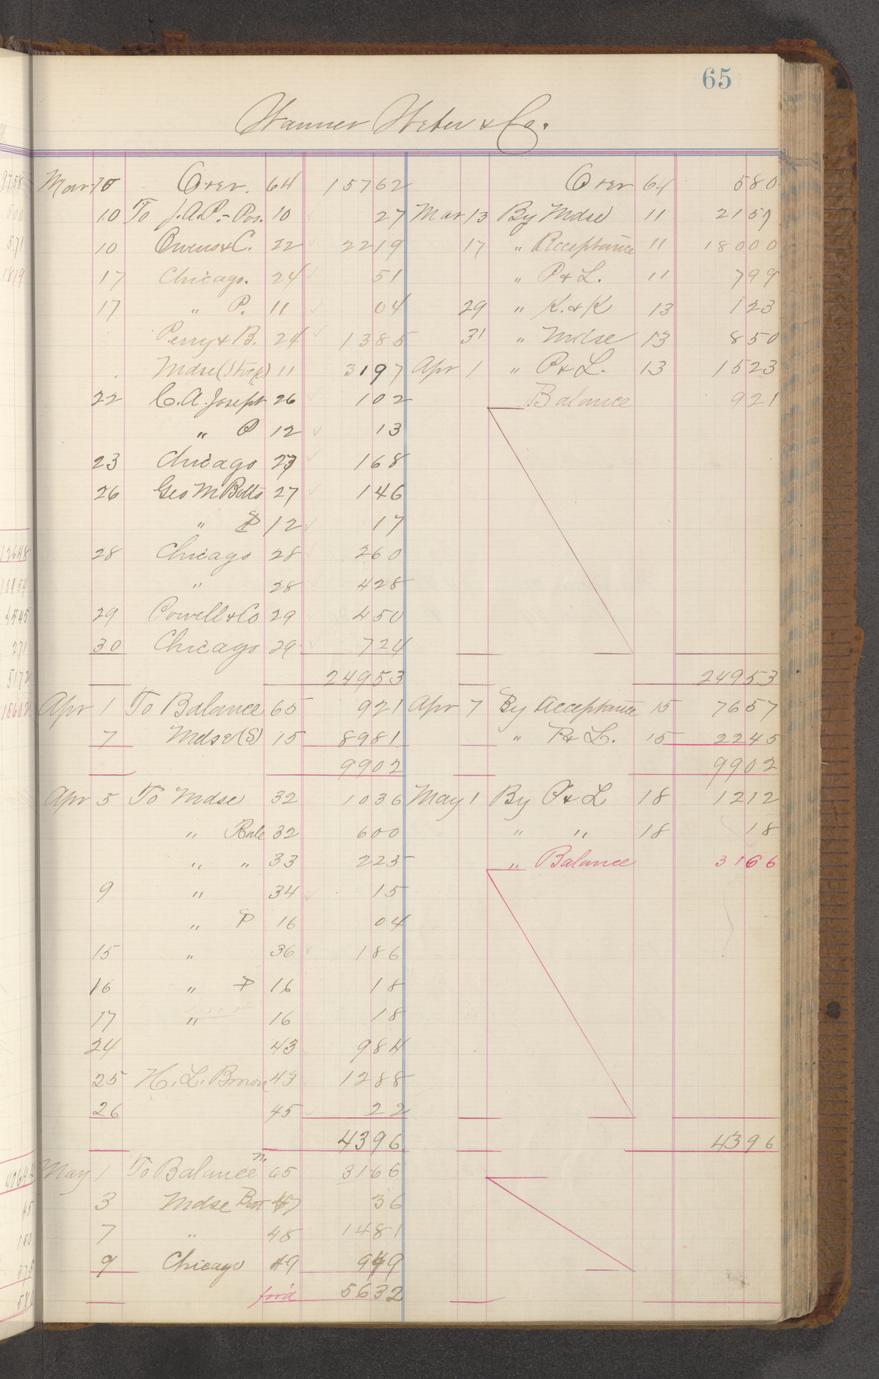 65
Wanner Weber & Co.
Mar 10 Over. 64 15762 Over 64 580
10 To J.A.P.- Pos. 10 27 Mar 13 By Mdse 11 2157
10 Owens & C. 22 2219 17 " Acceptance 11 18000
17 Chicago. 24 51 " P & L. 11 799
17 " P. 11 04 29 " K. & K 13 123
Perry & B. 24 1385 31 " Mdse 13 850
Mdse (Stock) 11 3197 Apr 1 " P & L. 13 1523
22 C. A. Joseph 26 102 Balance 921
" P 12 13
23 Chicago 27 168
26 Geo M Botts 27 146
" P 12 17
28 Chicago 28 260
" 28 428
29 Powell & Co 29 450
30 Chicago 29 724
24953 24953
Apr 1 To Balance 65 921 Apr 7 By Acceptance 15 7657
7 Mdse (S) 15 8981 " P & L. 15 2245
9902 9902
Apr 5 To Mdse 32 1036 May 1 By P & L 18 1212
" 32 600 " " 18 18
" " 33 225 " Balance 3166
9 " 34 15
" P 16 04
15 " 36 186
16 " P 16 18
17 " 16 18
24 43 984
25 H. L. Brown 43 1288
26 45 22
4396 4396
May 1 To Balance 65 3166
3 Mdse 47 36
7 " 48 1481
9 Chicago 49 949
for'd 5632